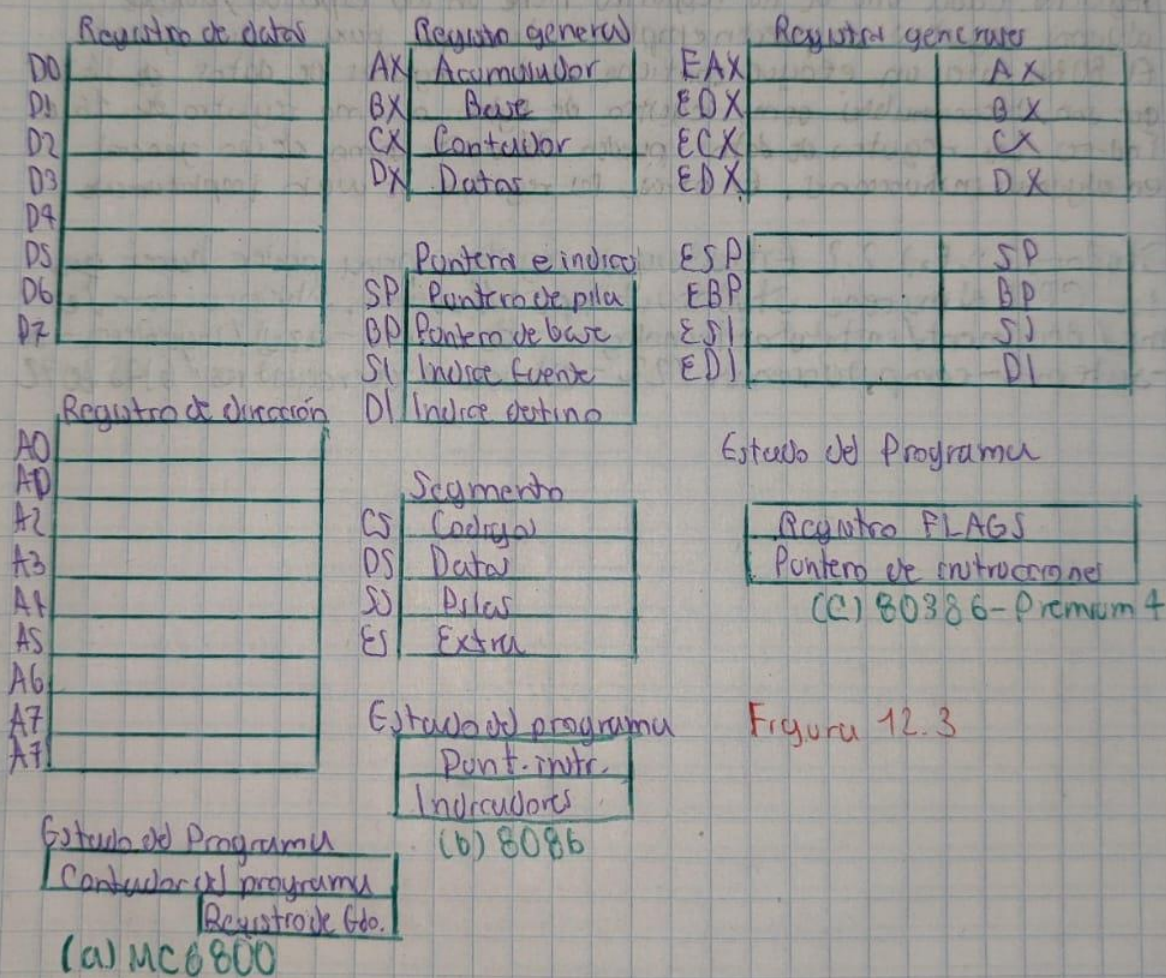 Registro de datos
D0
D1
D2
D3
D4
D5
D6
D7
Registro de dirección
A0
A0
A2
A3
A4
A5
A6
A7
A7
Estado del Programa
Contador del programa
Registro de Edo.
(a) MC6800
Registro general
AX Acumulador
BX Base
CX Contador
DX Datos
Punteros e indices
SP Puntero de pila
BP Puntero de base
SI Indice fuente
DI Indice destino
Segmento
CS Codigos
DS Datos
SS Pilas
ES Extra
Estado del programa
Punt. instr.
Indicadores
(b) 8086
Registros generales
EAX AX
EDX BX
ECX CX
EDX DX
ESP SP
EBP BP
ESI SI
EDI DI
Estado del Programa
Registro FLAGS
Puntero de instrucciones
(C) 80386-Premium 4
Figura 12.3